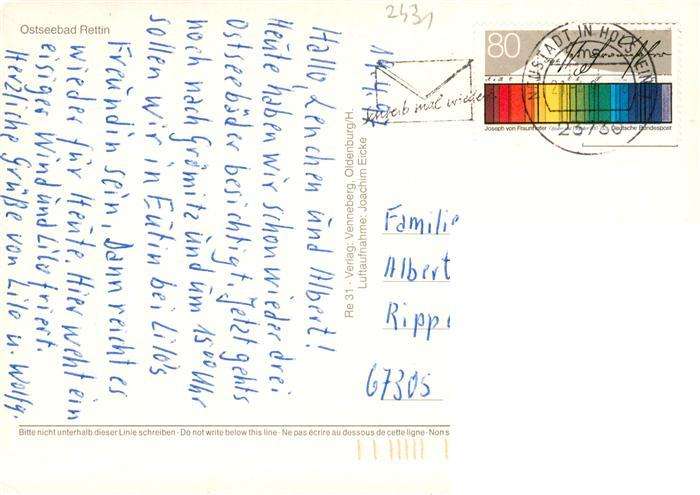 Ostseebad Rettin
Hallo, Lenchen und Albert!
Heute haben wir schon wieder drei
Ostseebäder besichtigt. Jetzt gehts
noch nach Grömitz und um 15 00 Uhr
sollen wir in Eutin bei Lilo's
Freundin sein, Dann reicht es
wieder für Heute. Hier weht ein
eisiger Wind und Lilo friert.
Herzliche Grüße von Lilo u. Wolfg.
Re 31 - Verlag: Venneberg, Oldenburg/H.
Luftaufnahme: Joachim Eicke
2431
schreib mal wieder
80
NEUSTADT IN HOLSTEIN
23730
Joseph von Fraunhofer
Deutsche Bundespost
Familie
Albert
Ripp
67305
Bitte nicht unterhalb dieser Linie schreiben · Do not write below this line · Ne pas écrire au dessous de cette ligne · Non s